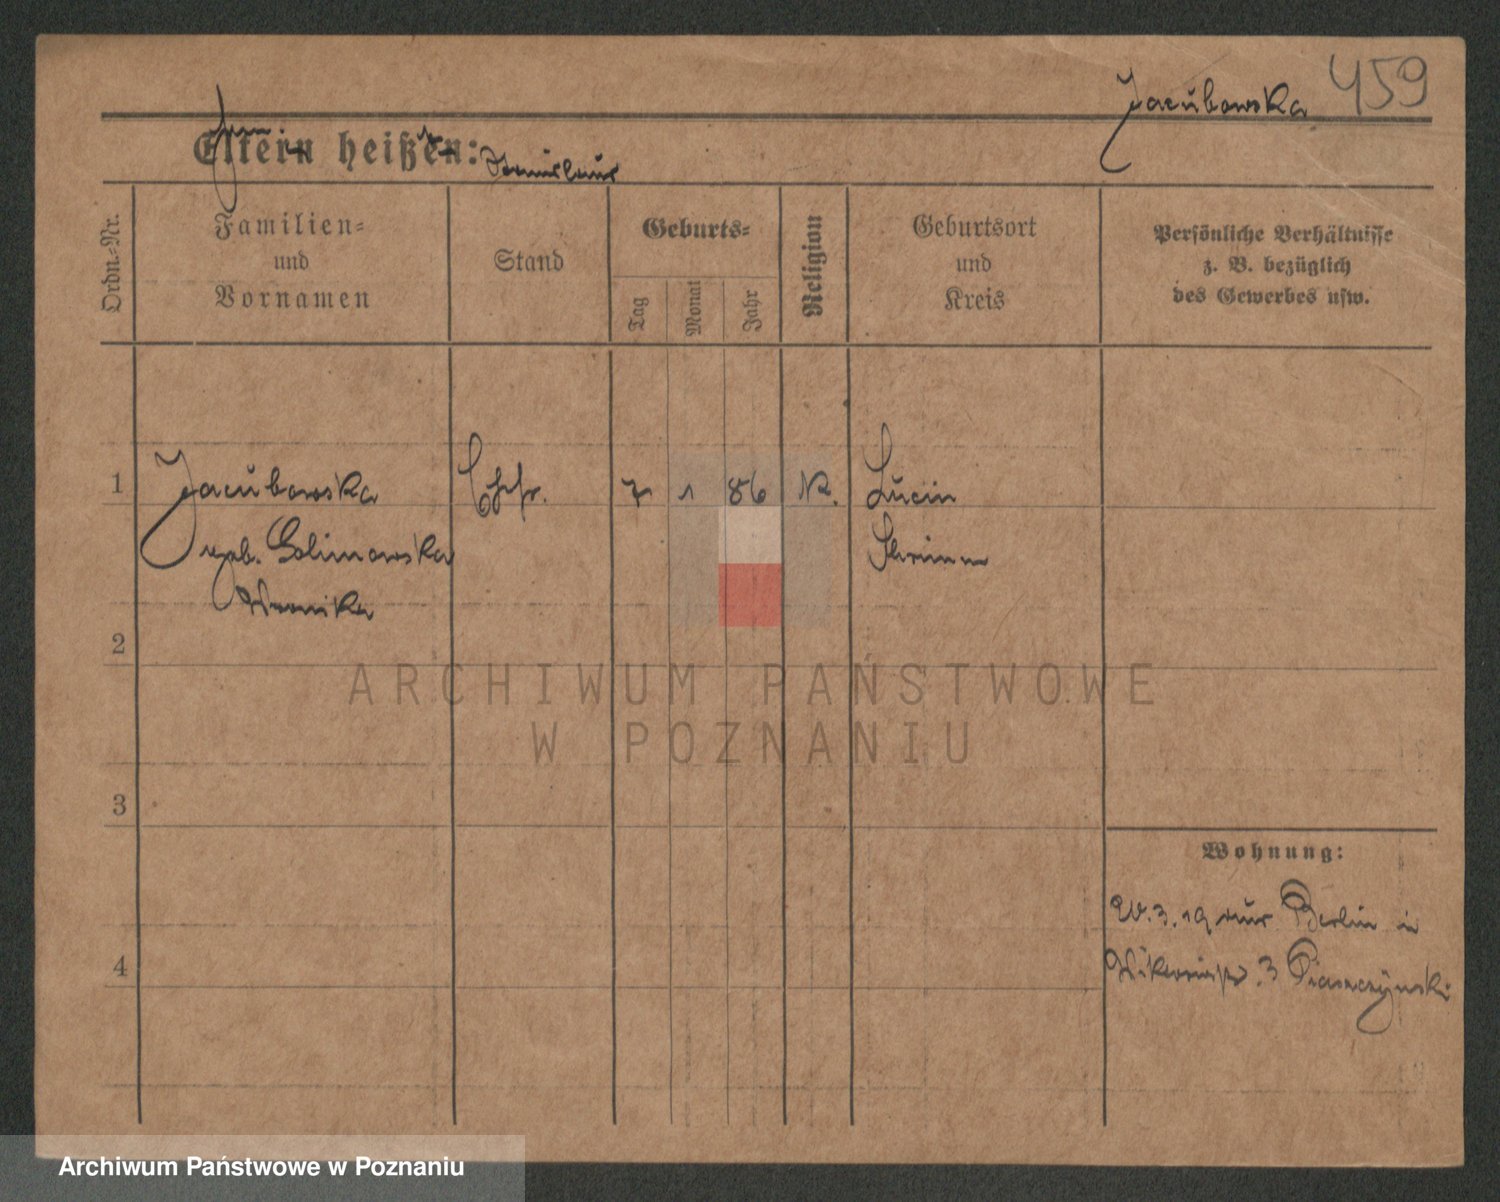 459
Jacubowska
Eltern heißen:
Stanislaus
Ordn.-Nr.
Familien-
und
Vornamen
Stand
Geburts-
Tag
Monat
Jahr
Religion
Geburtsort
und
Kreis
Persönliche Verhältnisse
z. B. bezüglich
des Gewerbes usw.
1
Jacubowska
Ehfr.
7
1
86
K.
Lucin
geb. Golimowska
Schrimm
Veronika
2
ARCHIWUM PAŃSTWOWE
W POZNANIU
3
Wohnung:
20.3.19 aus Berlin in
3 Piaseczynski
4
Archiwum Państwowe w Poznaniu